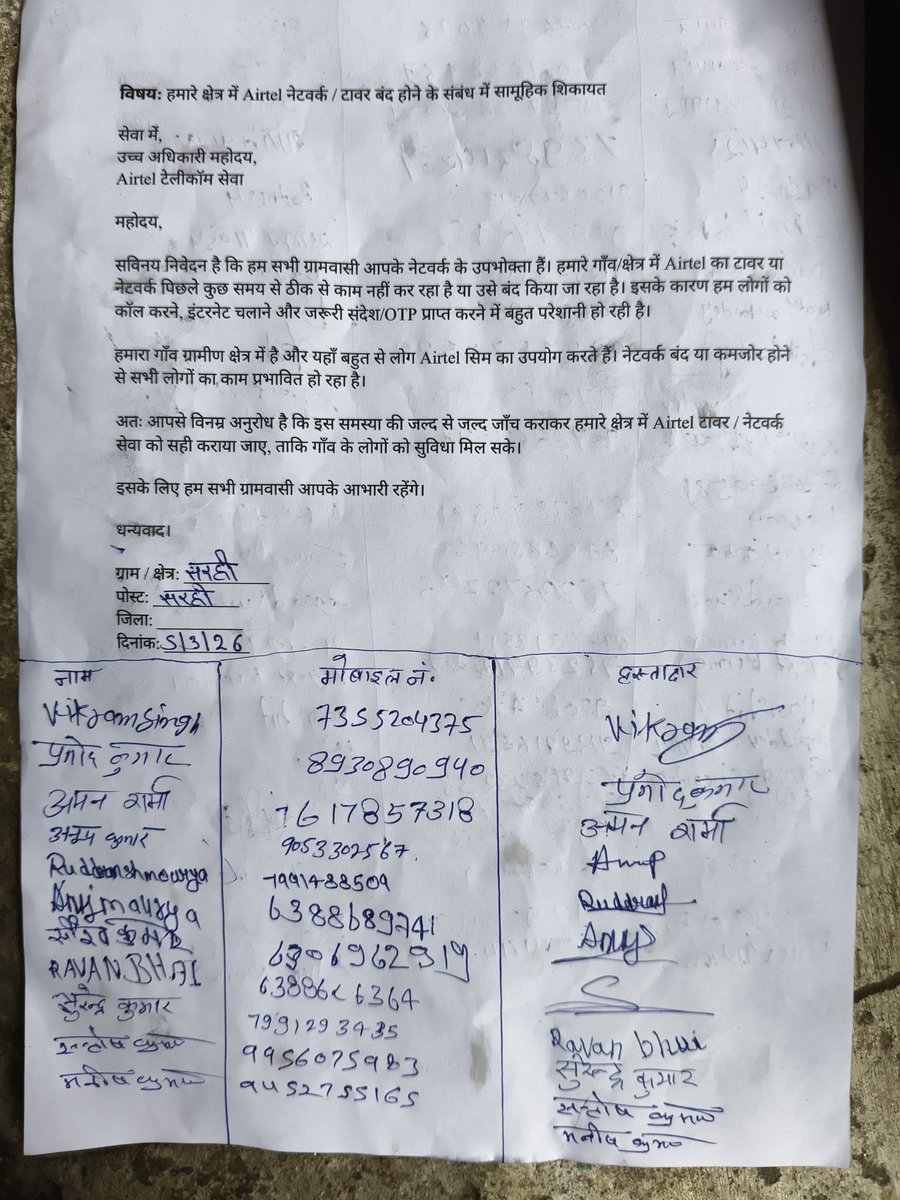 विषय: हमारे क्षेत्र में Airtel नेटवर्क / टावर बंद होने के संबंध में सामूहिक शिकायत
सेवा में,
उच्च अधिकारी महोदय,
Airtel टेलीकॉम सेवा
महोदय,
सविनय निवेदन है कि हम सभी ग्रामवासी आपके नेटवर्क के उपभोक्ता हैं। हमारे गाँव/क्षेत्र में Airtel का टावर या
नेटवर्क पिछले कुछ समय से ठीक से काम नहीं कर रहा है या उसे बंद किया जा रहा है। इसके कारण हम लोगों को
कॉल करने, इंटरनेट चलाने और जरूरी संदेश/OTP प्राप्त करने में बहुत परेशानी हो रही है।
हमारा गाँव ग्रामीण क्षेत्र में है और यहाँ बहुत से लोग Airtel सिम का उपयोग करते हैं। नेटवर्क बंद या कमजोर होने
से सभी लोगों का काम प्रभावित हो रहा है।
अतः आपसे विनम्र अनुरोध है कि इस समस्या की जल्द से जल्द जाँच कराकर हमारे क्षेत्र में Airtel टावर / नेटवर्क
सेवा को सही कराया जाए, ताकि गाँव के लोगों को सुविधा मिल सके।
इसके लिए हम सभी ग्रामवासी आपके आभारी रहेंगे।
धन्यवाद।
ग्राम / क्षेत्र: सरही
पोस्ट: सरही
जिला:
दिनांक: 5/3/26
नाम मोबाइल नं. हस्ताक्षर
Vikram Singh 7355204375 Vikram
प्रमोद कुमार 8930890940 प्रमोद कुमार
अमन शर्मा 7617857318 अमन शर्मा
कुमार 9053302567 Anup
Ruddranshmourya 7991488509
Anujmaurya 6388689741 Anuj
सौरव कुमार
RAVAN.BHAI Ravan bhai
सुरेन्द्र कुमार 7991293435 सुरेन्द्र कुमार
सन्तोष कुमार 9956075983 सन्तोष कुमार
मनीष कुमार 9452755165 मनीष कुमार